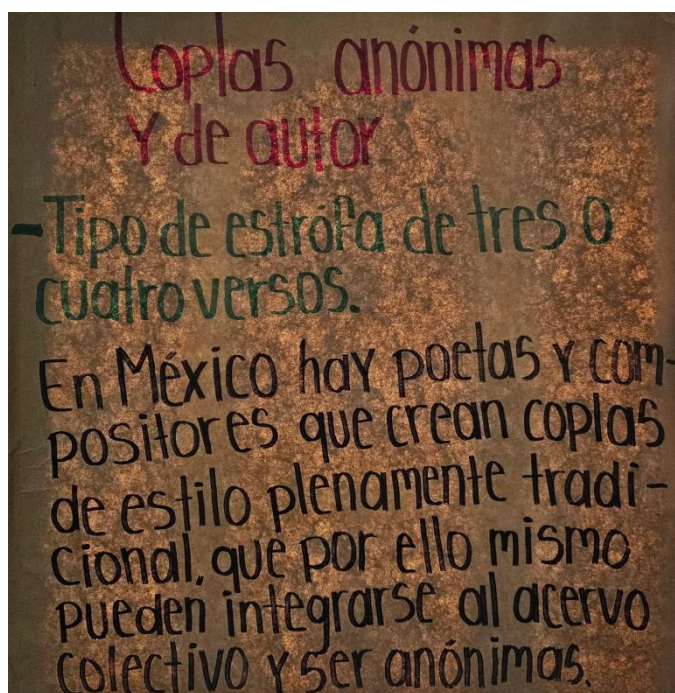 Coplas anónimas
Y de autor
-Tipo de estrófa de tres o
cuatro versos.
En México hay poetas y com-
positores que crean coplas
de estilo plenamente tradi-
cional, que por ello mismo
pueden integrarse al acervo
colectivo y ser anónimas.